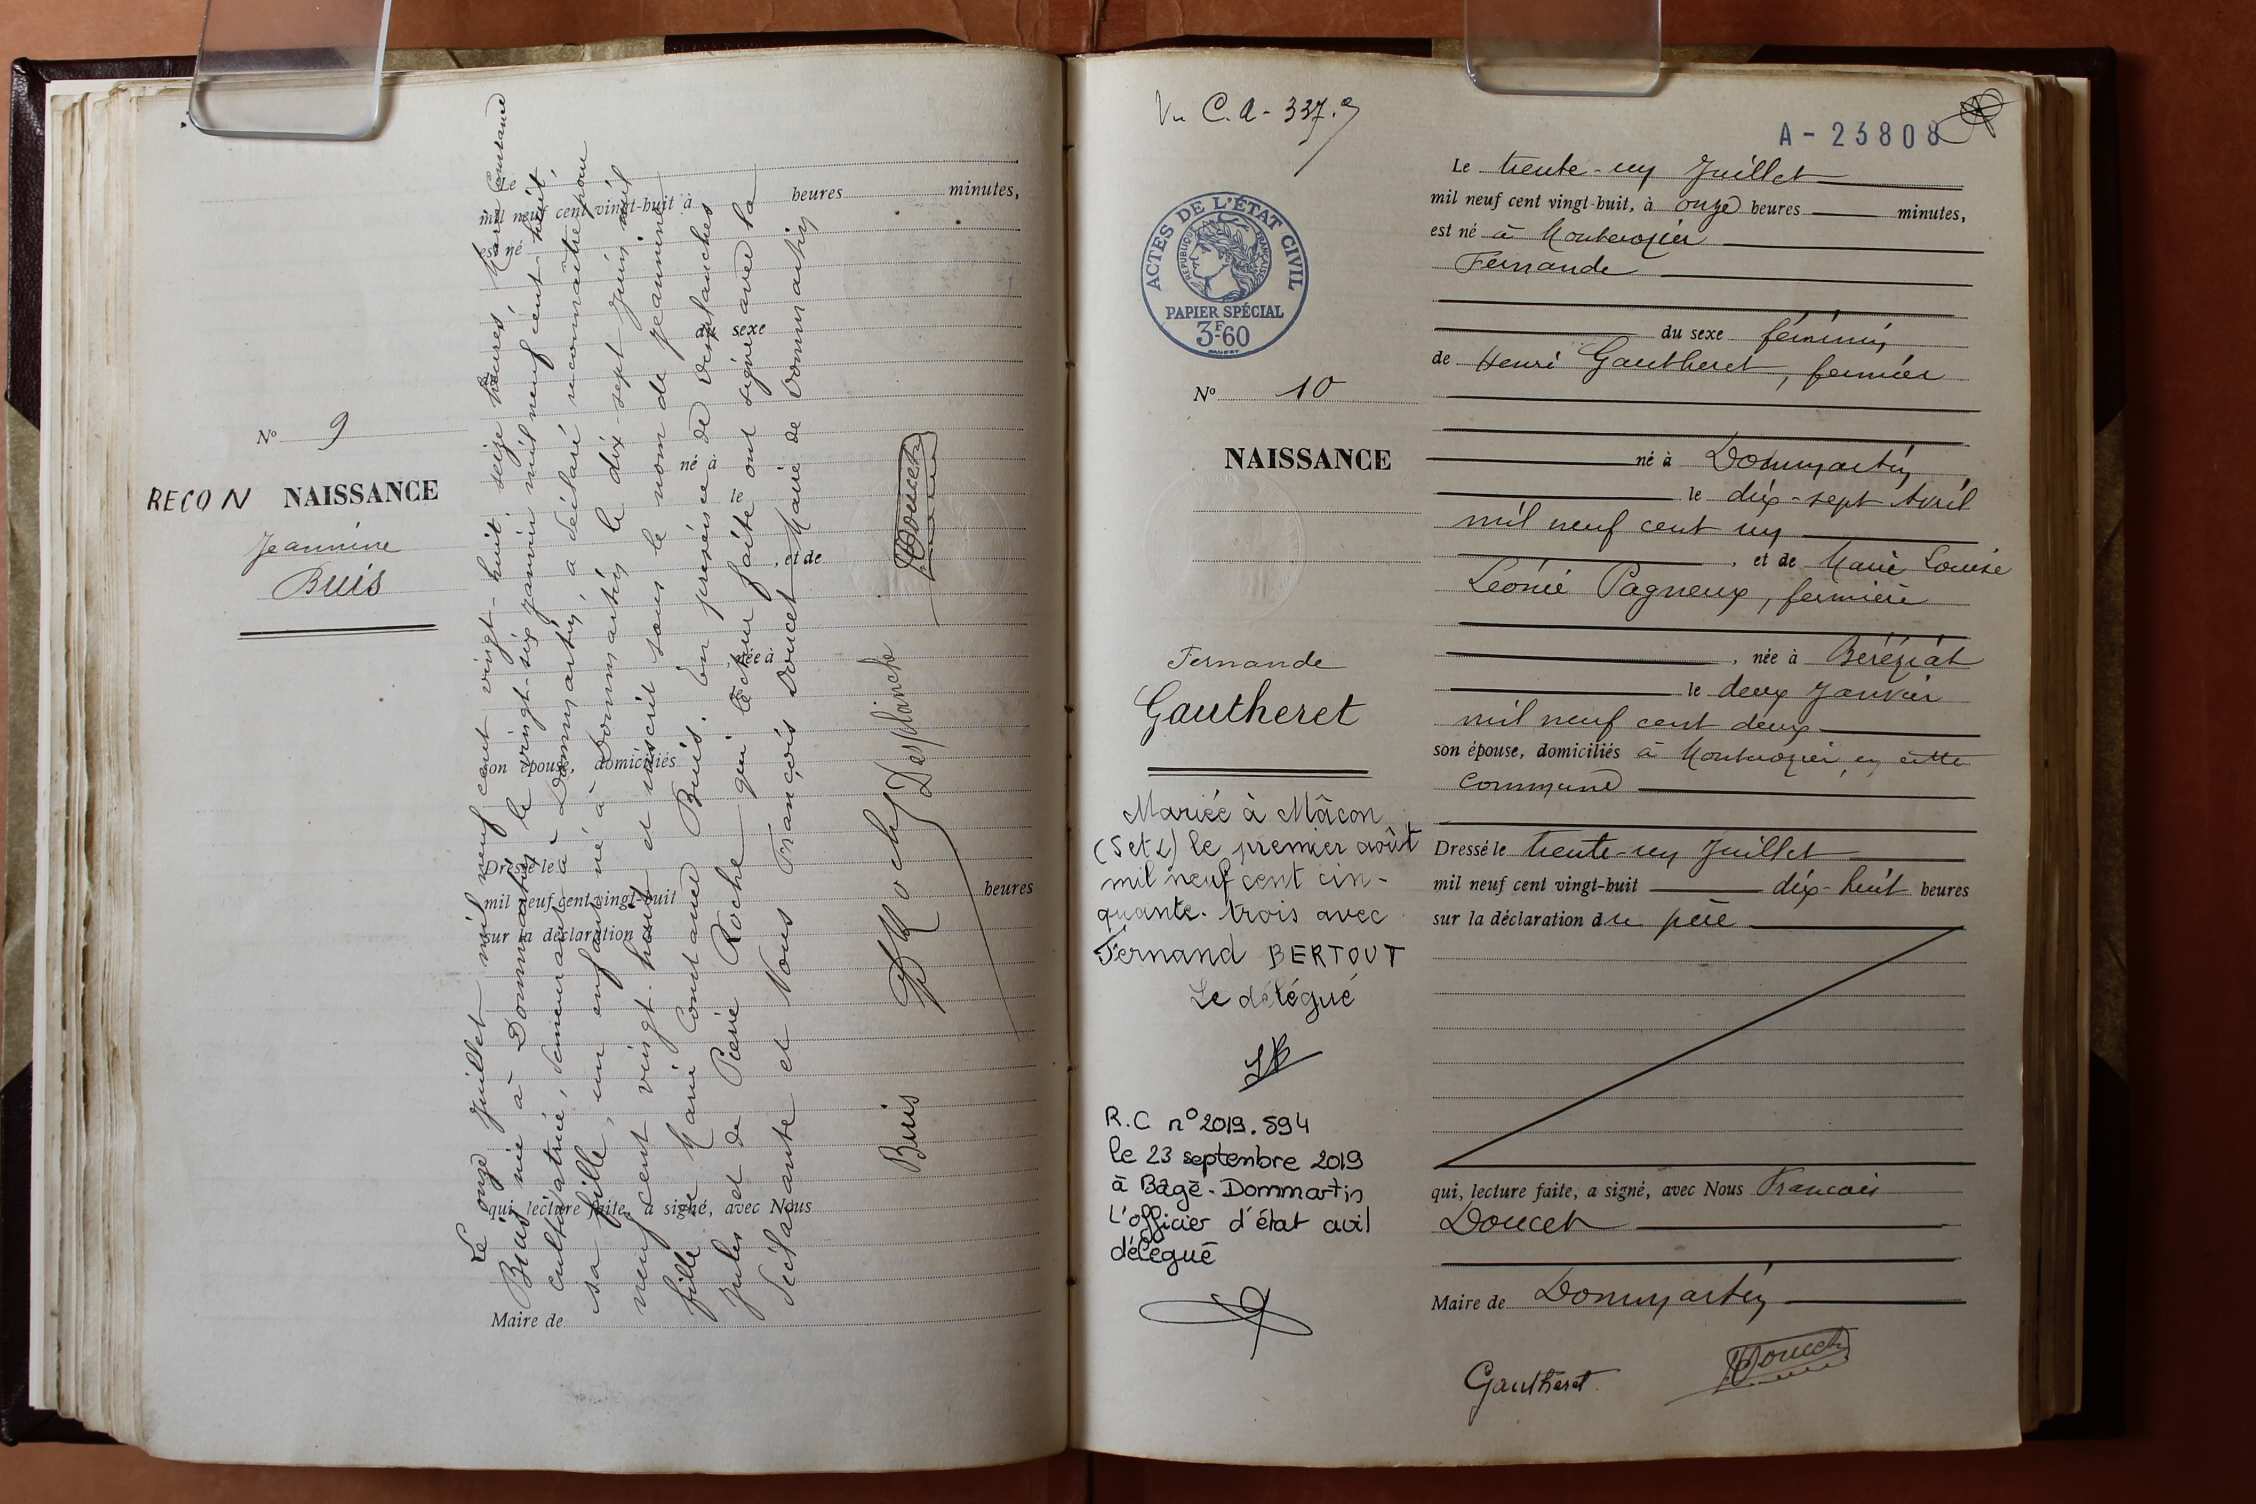 N° 9
RECON NAISSANCE
Jeannine
Buis
Le
mil neuf cent vingt-huit à heures minutes,
est né
du sexe
né à
le
, et de
, née à
son épouse, domiciliés
Dressé le
mil neuf cent vingt-huit heures
sur la déclaration d
qui, lecture faite, a signé, avec Nous
Maire de
Le onze Juillet mil neuf cent vingt-huit, seize heures, Marie Constance
Buis née à Dommartin le vingt-six janvier mil neuf cent huit,
cultivatrice, demeurant à Dommartin, a déclaré reconnaître pour
sa fille, un enfant né à Dommartin le dix-sept Juin mil
neuf cent vingt-huit et inscrit sous le nom de Jeannine
fille de Marie Constance Buis. En présence de Desplanches
Jules et de Pierre Roche qui lecture faite ont signé avec la
déclarante et Nous François Doucet Maire de Dommartin
Buis Roche Desplanche Doucet
Vu C.A - 337.
A - 23808
ACTES DE L'ÉTAT CIVIL
RÉPUBLIQUE FRANÇAISE
PAPIER SPÉCIAL
3F60
N° 10
NAISSANCE
Fernande
Gautheret
Mariée à Mâcon
(S et L) le premier août
mil neuf cent cin-
quante-trois avec
Fernand BERTOUT
Le délégué
R.C n° 2019.594
le 23 septembre 2019
à Bâgé-Dommartin
L'officier d'état civil
délégué
Le trente-un Juillet
mil neuf cent vingt-huit, à onze heures minutes,
est né à Montcrozier
Fernande
du sexe féminin
de Henri Gautheret, fermier
né à Dommartin
le dix-sept Avril
mil neuf cent un
, et de Marie Louise
Léonie Pagneux, fermière
, née à Béréziat
le deux Janvier
mil neuf cent deux
son épouse, domiciliés à Montcrozier, en cette
commune
Dressé le trente-un Juillet
mil neuf cent vingt-huit dix-huit heures
sur la déclaration du père
qui, lecture faite, a signé, avec Nous Francois
Doucet
Maire de Dommartin
Gautheret Doucet